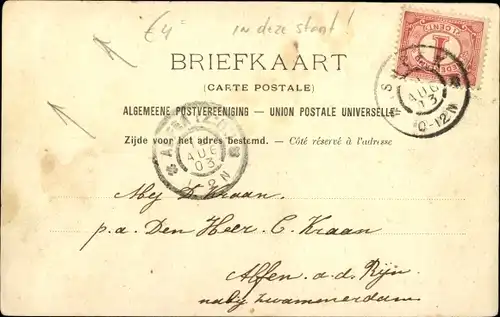 €4 in deze staat!
BRIEFKAART
(CARTE POSTALE)
ALGEMEENE POSTVEREENIGING — UNION POSTALE UNIVERSELLE
Zijde voor het adres bestemd. — Côté réservé à l'adresse
AUG
03
10-12N
AUG
03
1-2N
Mej D. Kraan.
p.a. Den Heer. C. Kraan
Alfen a.d. Rijn
nabij Zwammerdam